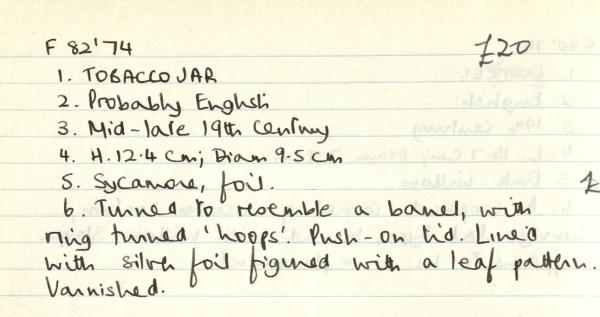 F 82'74 £20
1. TOBACCO JAR
2. Probably English
3. Mid-late 19th Century
4. H. 12.4 cm; Diam 9.5 cm
5. Sycamore, foil.
6. Turned to resemble a barrel, with
ring turned 'hoops'. Push-on lid. Lined
with silver foil figured with a leaf pattern.
Varnished.